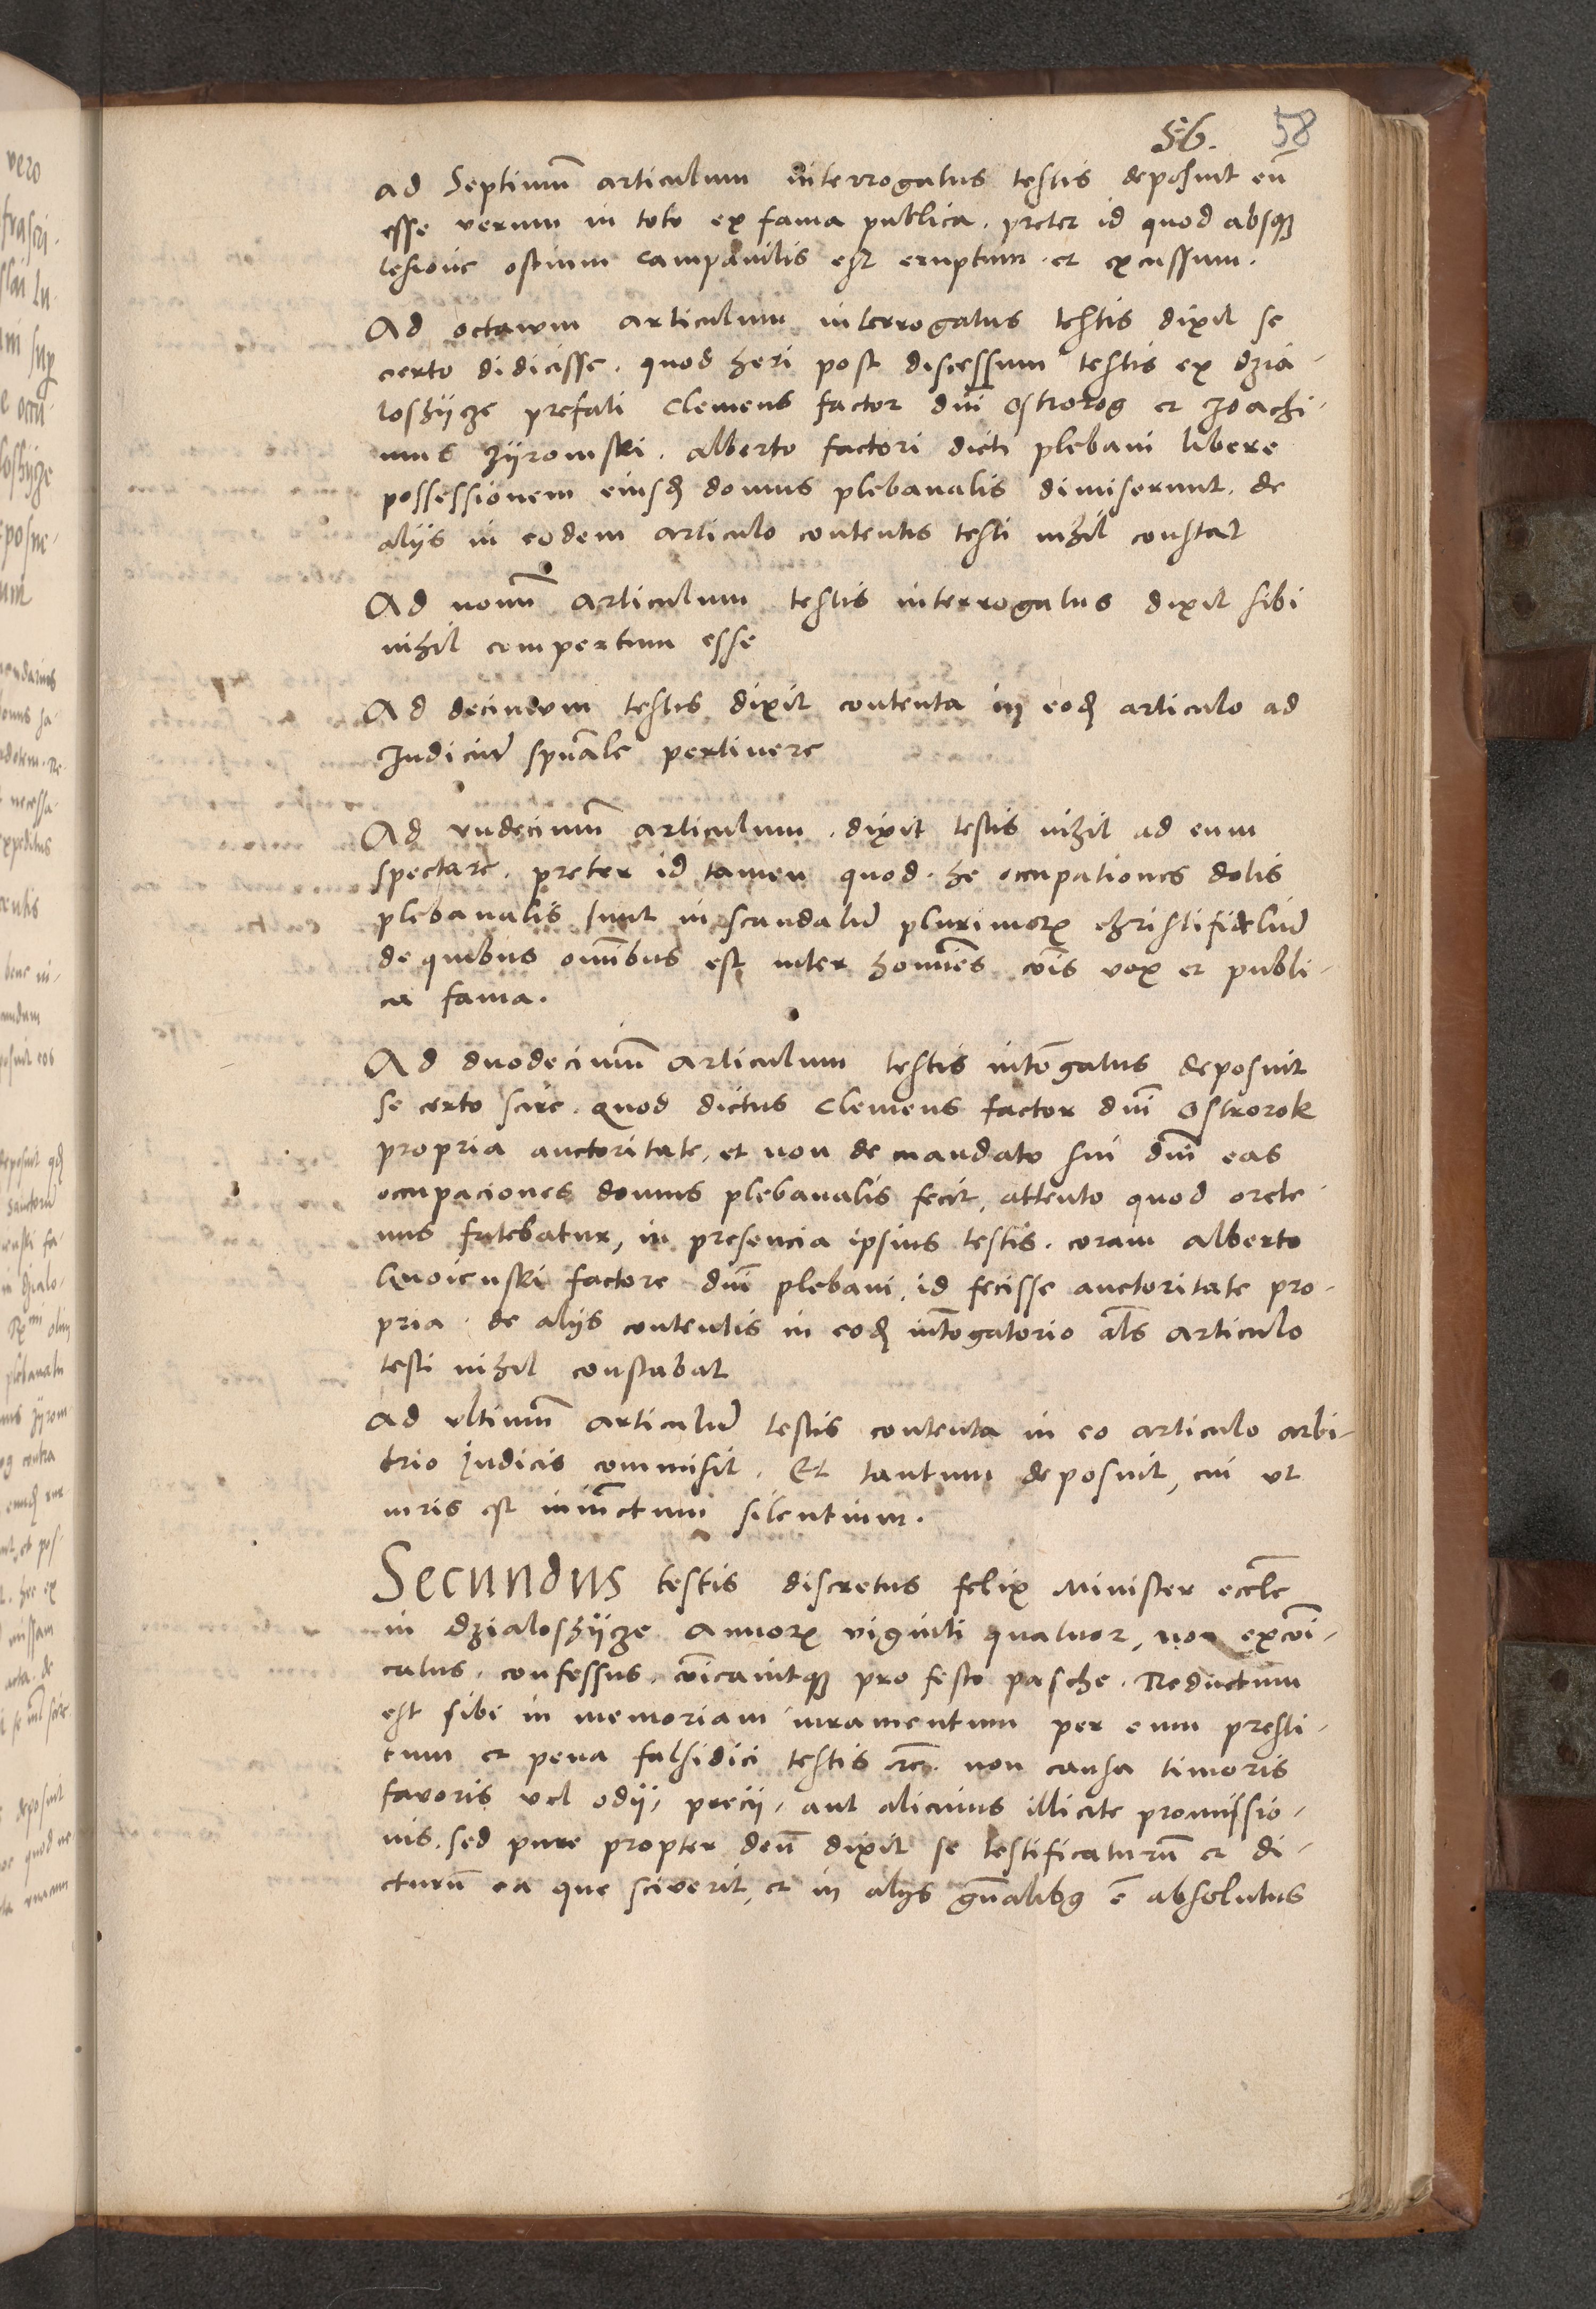 56. 58
ad Septimū articulum interrogatus testis deposuit eū
esse verum in toto ex fama publica. preter id quod absqꝫ
lesione ostium campanilis est eruptum. et excussum.
Ad octavum articulum interrogatus testis dixit se
certo didicisse. quod heri post discessum testis ex dzia-
loshÿcze prefati Clemens factor dnī Ostrorog et Joachi-
mus Zÿromski. Alberto factori dicti plebani libere
possessionem eiusd domus plebanalis dimiserunt. de
alijs in eodem articulo contentis testi nihil constat
Ad nonū articulum testis interrogatus dixit sibi
nihil compertum esse
Ad decimum testis dixit contenta in eod articulo ad
Judiciū spūale pertinere
Ad undecimū articulum. dixit testis nihil ad eum
spectare. preter id tamen quod. he occupationes dotis
plebanalis sunt in scandalū plurimorꝫ christifideliū
de quibus omībus est inter homīes cōis vox et publi-
ca fama.
Ad duodecimū articulum testis intōgatus deposuit
se certo scire. quod dictus Clemens factor dnī Ostrorok
propria auctoritate, et non de mandato sui dnī eas
occupaciones domus plebanalis fecit, attento quod orete-
nus fatebatur, in presencia ipsius testis. coram Alberto
Gnoienski factore dnī plebani, id fecisse auctoritate pro-
pria. de alijs contentis in eod intōgatorio als̄ articulo
testi nihil constabat
Ad ultimū articulū testis contenta in eo articulo arbi-
trio Judicis commisit. Et tantum deposuit, cui ut
iuris est iniūctum silentium.
Secundus testis discretus felix Minister eccl̄e
in Dzialoshÿcze Annorꝫ viginti quatuor, non excōi-
catus. confessus. cōicavitqꝫ pro festo pasche. Reductum
est sibi in memoriam iuramentum per eum presti-
tum et pena falsidici testis etc̄. non causa timoris
favoris vel odij, precij, aut alicuius illicite promissio-
nis. sed pure propter deū dixit se testificaturū et di-
cturū ea que sciverit, et in alijs gn̄alibꝰ ē absolutus